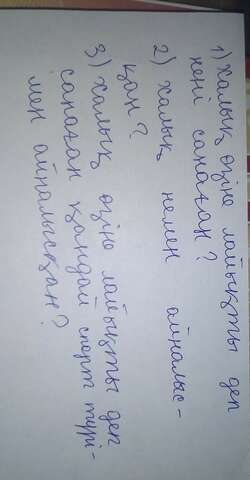 1) Халық өзіне лайықты деп
нені санаған?
2) Халық немен айналыс-
қан?
3) Халық өзіне лайықты деп
санаған қандай спорт түрі-
мен айналысқан?